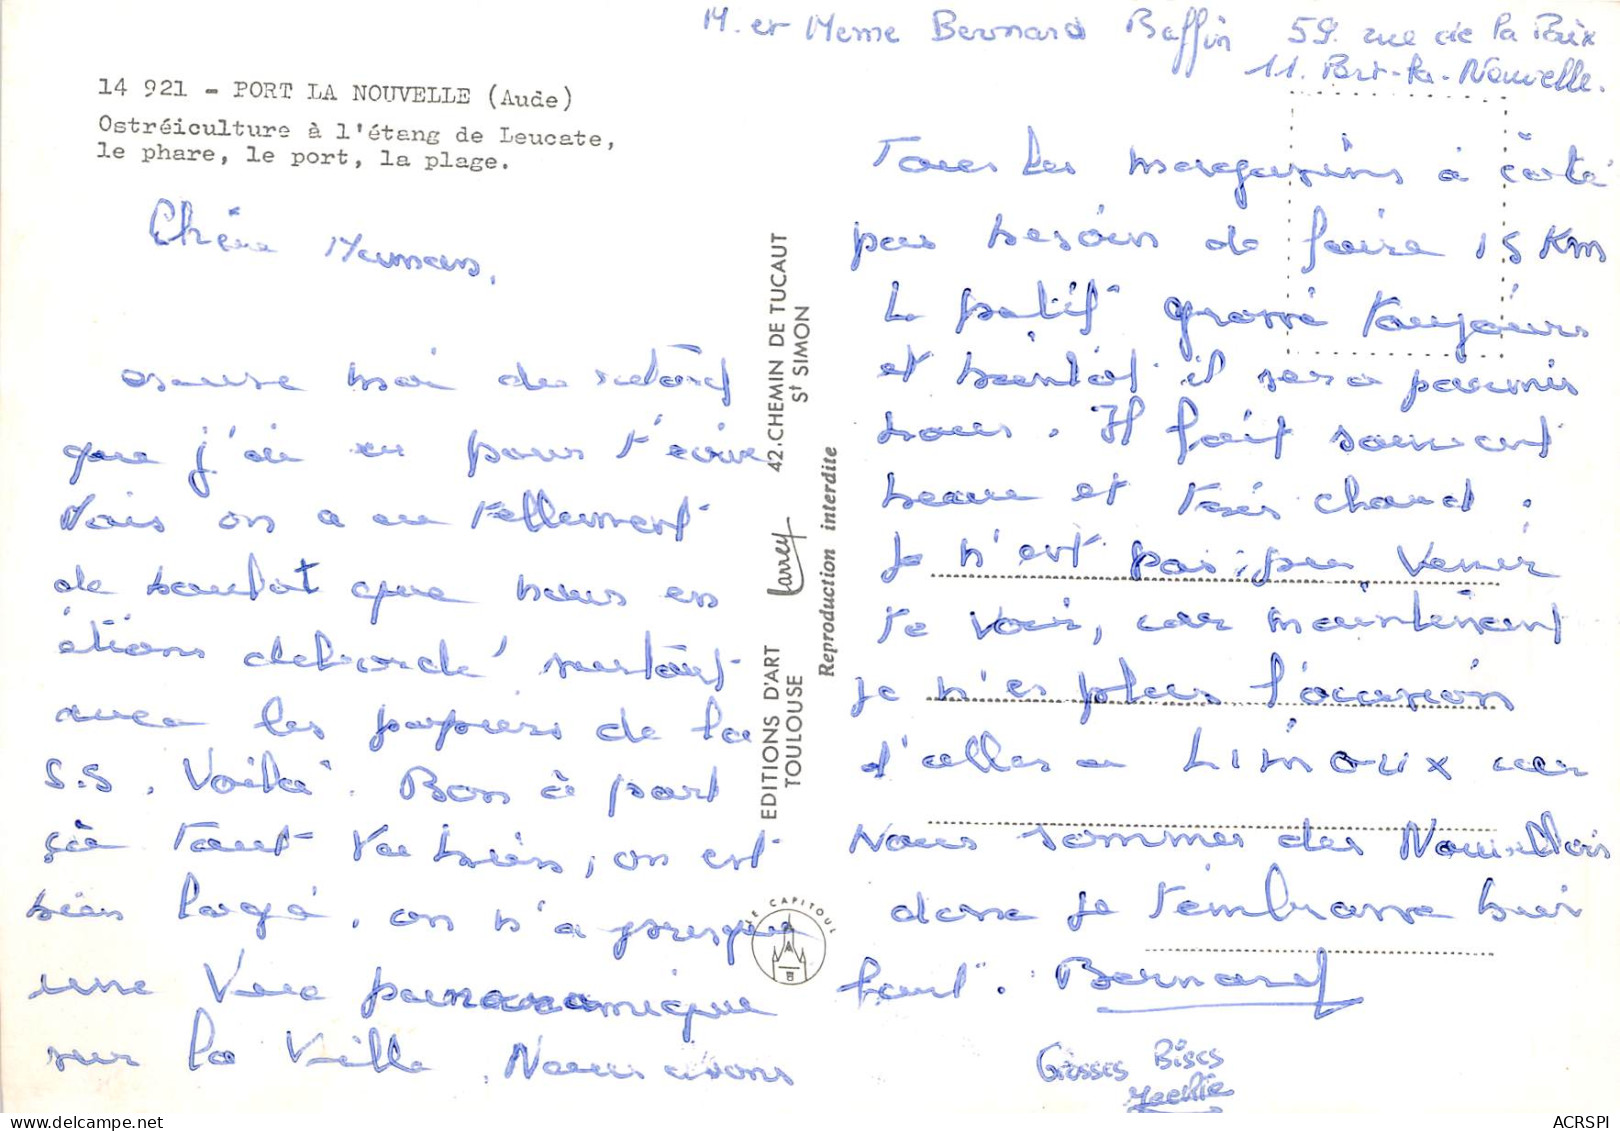 M. et Meme Bernard Baffin 59. rue de la Paix
11. Port-la-Nouvelle.
14 921 - PORT LA NOUVELLE (Aude)
Ostréiculture à l'étang de Leucate,
le phare, le port, la plage.
Chère Maman,
excuse moi du retard
que j'ai eu pour t'écrire
Mais on a eu tellement
de boulot que nous en
étions débordé surtout
avec les papiers de la
S.S. Voilà. Bon à part
çà tout va bien, on est
bien logé, on n'a presque
une vue panoramique
sur la ville. Nous avons
EDITIONS D'ART Larrey 42.CHEMIN DE TUCAUT
TOULOUSE St SIMON
Reproduction interdite
LE CAPITOUL
Tous les magasins à côté
pas besoin de faire 15 Km
Le petit grossi toujours
et bientôt il sera parmis
nous. Il fait souvent
beau et très chaud.
Je n'est pas pu venir
te voir, car maintenant
je n'es plus l'occasion
d'aller a LIMOUX car
Nous sommes des Nouvellois
donc je t'embrasse bien
fort. Bernard
Grosses Bises